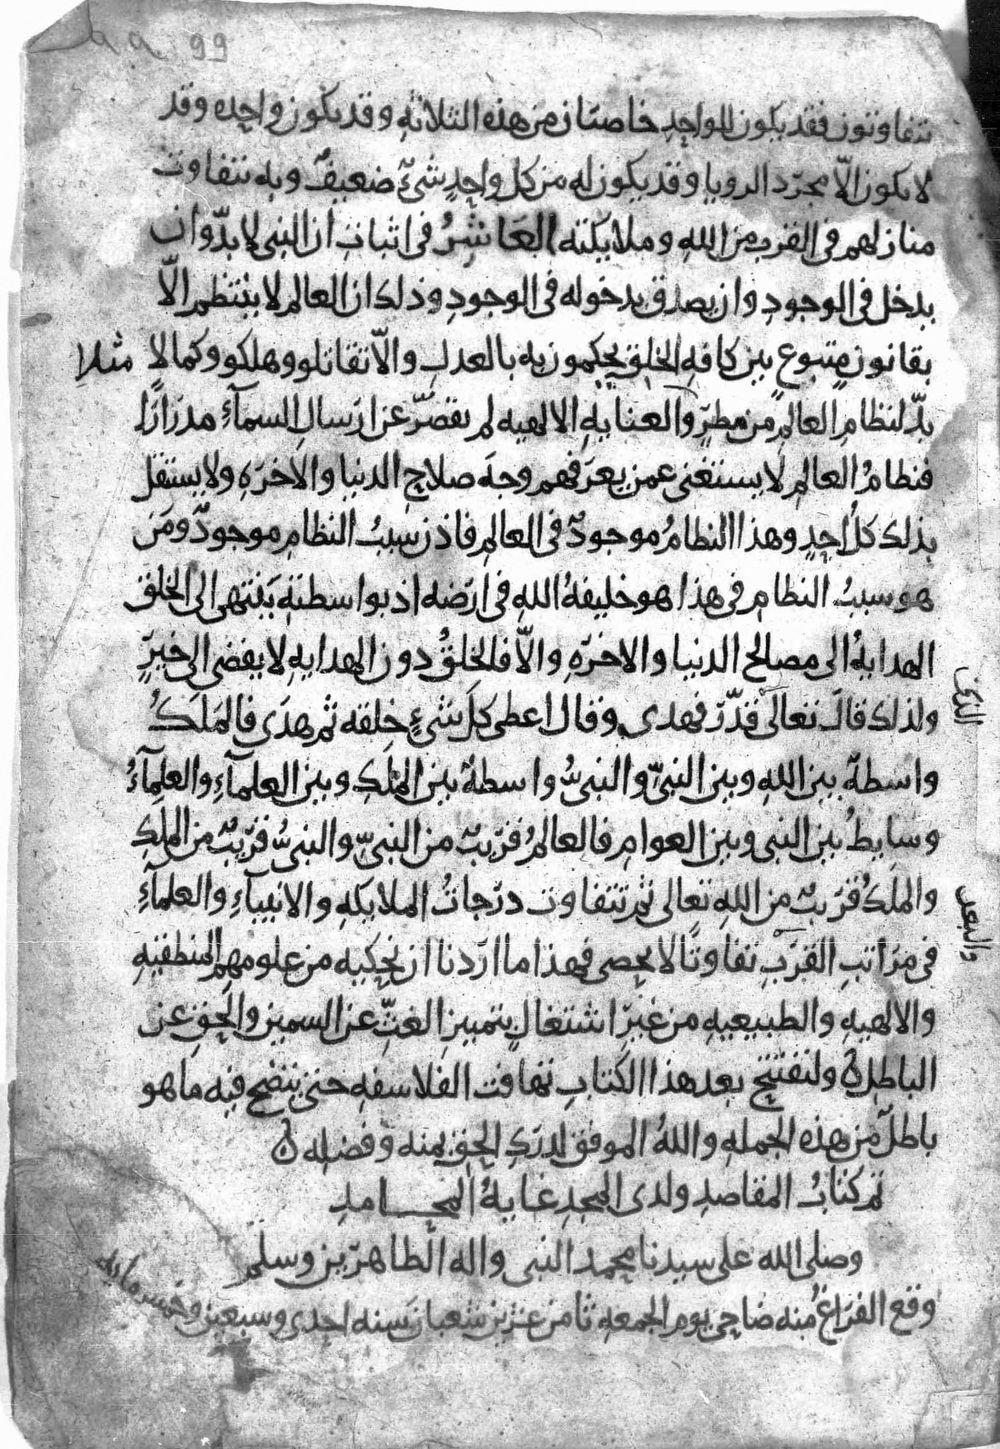 99 99
تتفاوتون فقد يكون للواحد خاصتان من هذه الثلاثة وقد يكون واحده وقد
لا يكون الّا مجرّد الرويا وقد يكون له من كل واحدٍ شىءٌ ضعيفٌ وبه تتفاوت
منازلهم فى القرب من الله وملايكته العَاشِرُ فى اثبات ان النبى لا بدّ وان
يدخل فى الوجودِ وان يصدق بدخوله فى الوجودِ وذلك ان العالم لا ينتظم الّا
بقانونٍ متبوع بين كافه الخلق يحكمون به بالعدل والّا تقاتلوو وهلكو وكما لا مثلا
بدّ لنظامِ العالمِ من مطرٍ والعنايهِ الالهيه لم تقصّر عن ارسالِ السمآءِ مدرارًا
فنظامُ العالم لا يستغنى عمن يعرّفهم وجهَ صلاحِ الدنيا والاخرَهِ ولا يستقل
بذلك كلُ احدٍ وهذا النظامُ موجودٌ فى العالم فاذن سببُ النظامِ موجودٌ ومَن
هو سببُ النظامِ فى هذا هو خليفهُ اللهِ فى ارضه اذ بواسطتهِ يَنتهى الى الخلق
الهدايهُ الى مصالح الدنيا والاخرَهِ والّا فالخلقُ دون الهدايهِ لا يفضى الى خيرٍ
ولذلك قالَ تعالى قدّرَ فهدى وقال اعطى كلَ شىءٍ خلقه ثم هدَى فالمَلَكُ
واسطهٌ بين اللهِ وبين النبىّ والنبىُّ واسطهٌ بين المَلَكِ وبين العلمآءِ والعلمآءُ
وسايطُ بين النبى وبين العوامِ فالعالمُ قريبٌ من النبىّ والنبىُّ قريبٌ من المَلَكِ
والمَلَكُ قريبٌ من اللهِ تعالى ثم تتفاوت درَجاتُ الملايكهِ والانبيآءِ والعلمآءِ
والبعد
فى مرَاتبِ القرَبِ تفاوتًا لا يحصى فهذا ما ارَدنا ان نحكيه من علومهم المنطقيهِ
والالهيهِ والطبيعيهِ من غيرِ اشتغالٍ بتمييز الغثِّ عن السمين والحق عن
الباطلِ ولنفتتح بعد هذا الكتابِ تهافت الفلاسفه حتى يتضح فيه ما هو
باطلٌ من هذه الجمله واللهُ الموفق لدرَكِ الحق بمنه وفضله
تم كتابُ المقاصدِ ولذى المجدِ غايهُ المحامدِ
وصلى الله على سيدنا محمد النبى واله الطاهرَين وسلم
وقع الفرَاغُ منه ضاحى يوم الجمعهِ ثامن عشرين شعبان سنه احدى وسبعين وخمسمايه